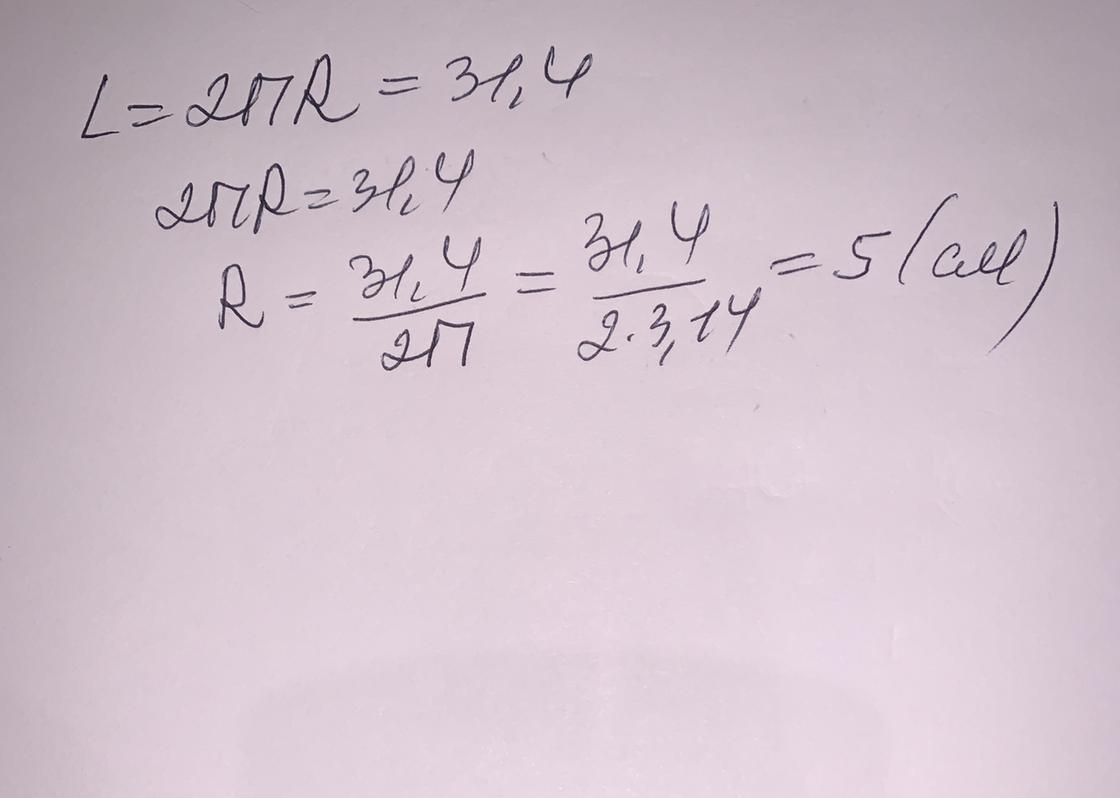 L = 2πR = 31,4
2πR = 31,4
R = 31,4/2π = 31,4/2·3,14 = 5 (см)